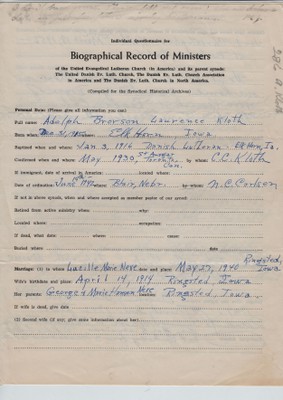 Individual Questionnaire for
Biographical Record of Ministers
of the United Evangelical Lutheran Church (in America) and its parent synods:
The United Danish Ev. Luth. Church, The Danish Ev. Luth. Church Association
in America and The Danish Ev. Luth. Church in North America.
(Compiled for the Synodical Historical Archives)
Personal Data: (Please give all information you can)
Full name: Adolph Brorson Laurence Kloth
Born when: Dec. 31, where: Elk Horn, Iowa
Baptized when and where: Jan 3, 1916 Danish Lutheran - Elk Horn, Ia.
Confirmed when and where: May 1930, by whom: C.C. Kloth
If immigrated, date of arrival in America: Located where:
Date of ordination: June where: Blair, Nebr. by whom: N.C. Carlsen
If not in above synods, when and where accepted as member pastor of our synod:
Retired from active ministry when: why:
Located on congregation: where:
If dead, what date: where: cause:
Buried where: date
Ringsted,
Marriage: (1) to whom: Lucille Marie Ness when and place: May 27, 1940 Iowa
Wife's birthdate and place: April 14, 1919 Ringsted, Iowa
Her parents: George & Marie Hansen Ness location: Ringsted, Iowa
If wife is dead, give date:
(2) Second wife (if any, give same information about her):